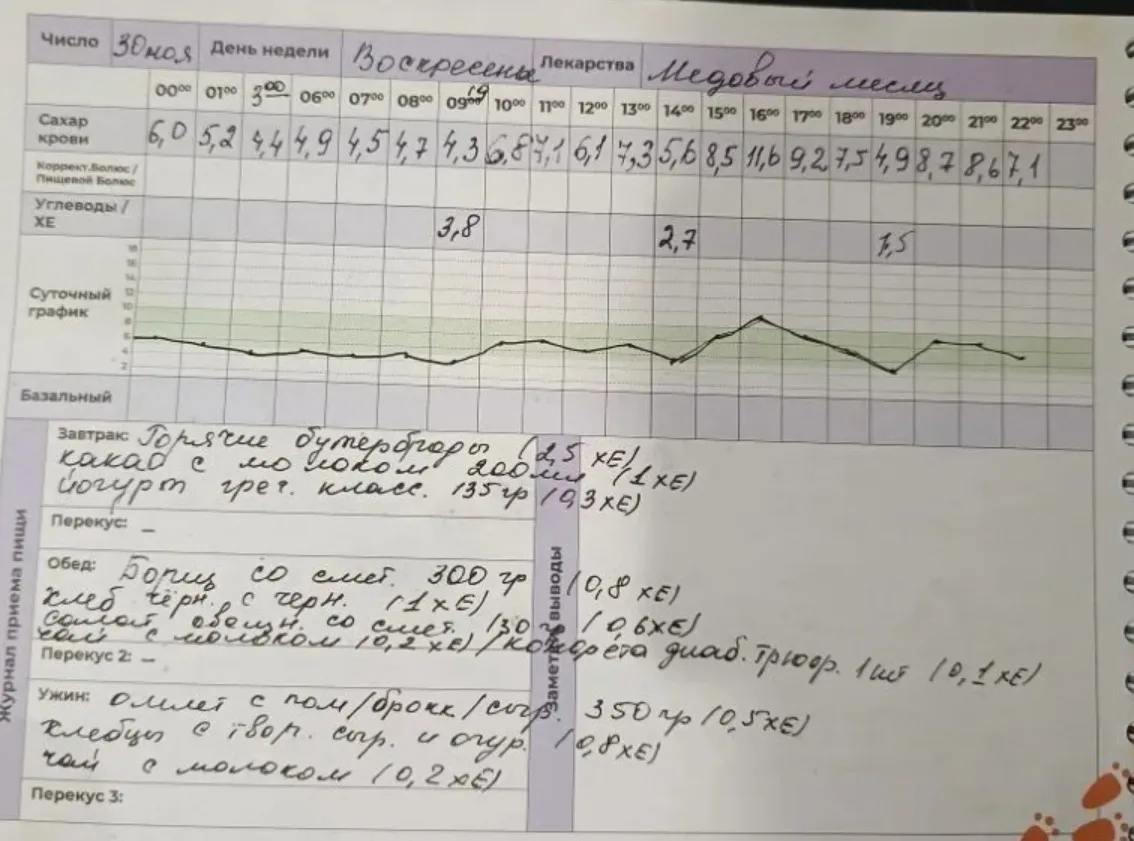 Число 30 ноя День недели Воскресенье Лекарства Медовый месяц
00⁰⁰ 01⁰⁰ 3⁰⁰ 06⁰⁰ 07⁰⁰ 08⁰⁰ 09⁰⁰ 10⁰⁰ 11⁰⁰ 12⁰⁰ 13⁰⁰ 14⁰⁰ 15⁰⁰ 16⁰⁰ 17⁰⁰ 18⁰⁰ 19⁰⁰ 20⁰⁰ 21⁰⁰ 22⁰⁰ 23⁰⁰
Сахар
крови
6,0 5,2 4,4 4,9 4,5 4,7 4,3 6,8 7,1 6,1 7,3 5,6 8,5 11,6 9,2 7,5 4,9 8,7 8,6 7,1
Коррект.Болюс /
Пищевой Болюс
Углеводы /
ХЕ
3,8 2,7 1,5
Суточный
график
18
16
14
12
10
8
6
4
2
Базальный
Журнал приема пищи
Завтрак: Горячие бутерброды (2,5 ХЕ)
какао с молоком 200мл (1 ХЕ)
йогурт греч. класс. 135 гр (0,3 ХЕ)
Перекус: –
Обед: Борщ со смет. 300 гр (0,8 ХЕ)
хлеб чёрн. с черн. (1 ХЕ)
салат овощн. со смет. 130 гр (0,6 ХЕ)
чай с молоком (0,2 ХЕ) / конфета диаб. трюф. 1 шт (0,1 ХЕ)
Перекус 2: –
Ужин: омлет с пом/брокк/сыр. 350 гр (0,5 ХЕ)
хлебцы с твор. сыр. и огур. (0,8 ХЕ)
чай с молоком (0,2 ХЕ)
Перекус 3:
выводы